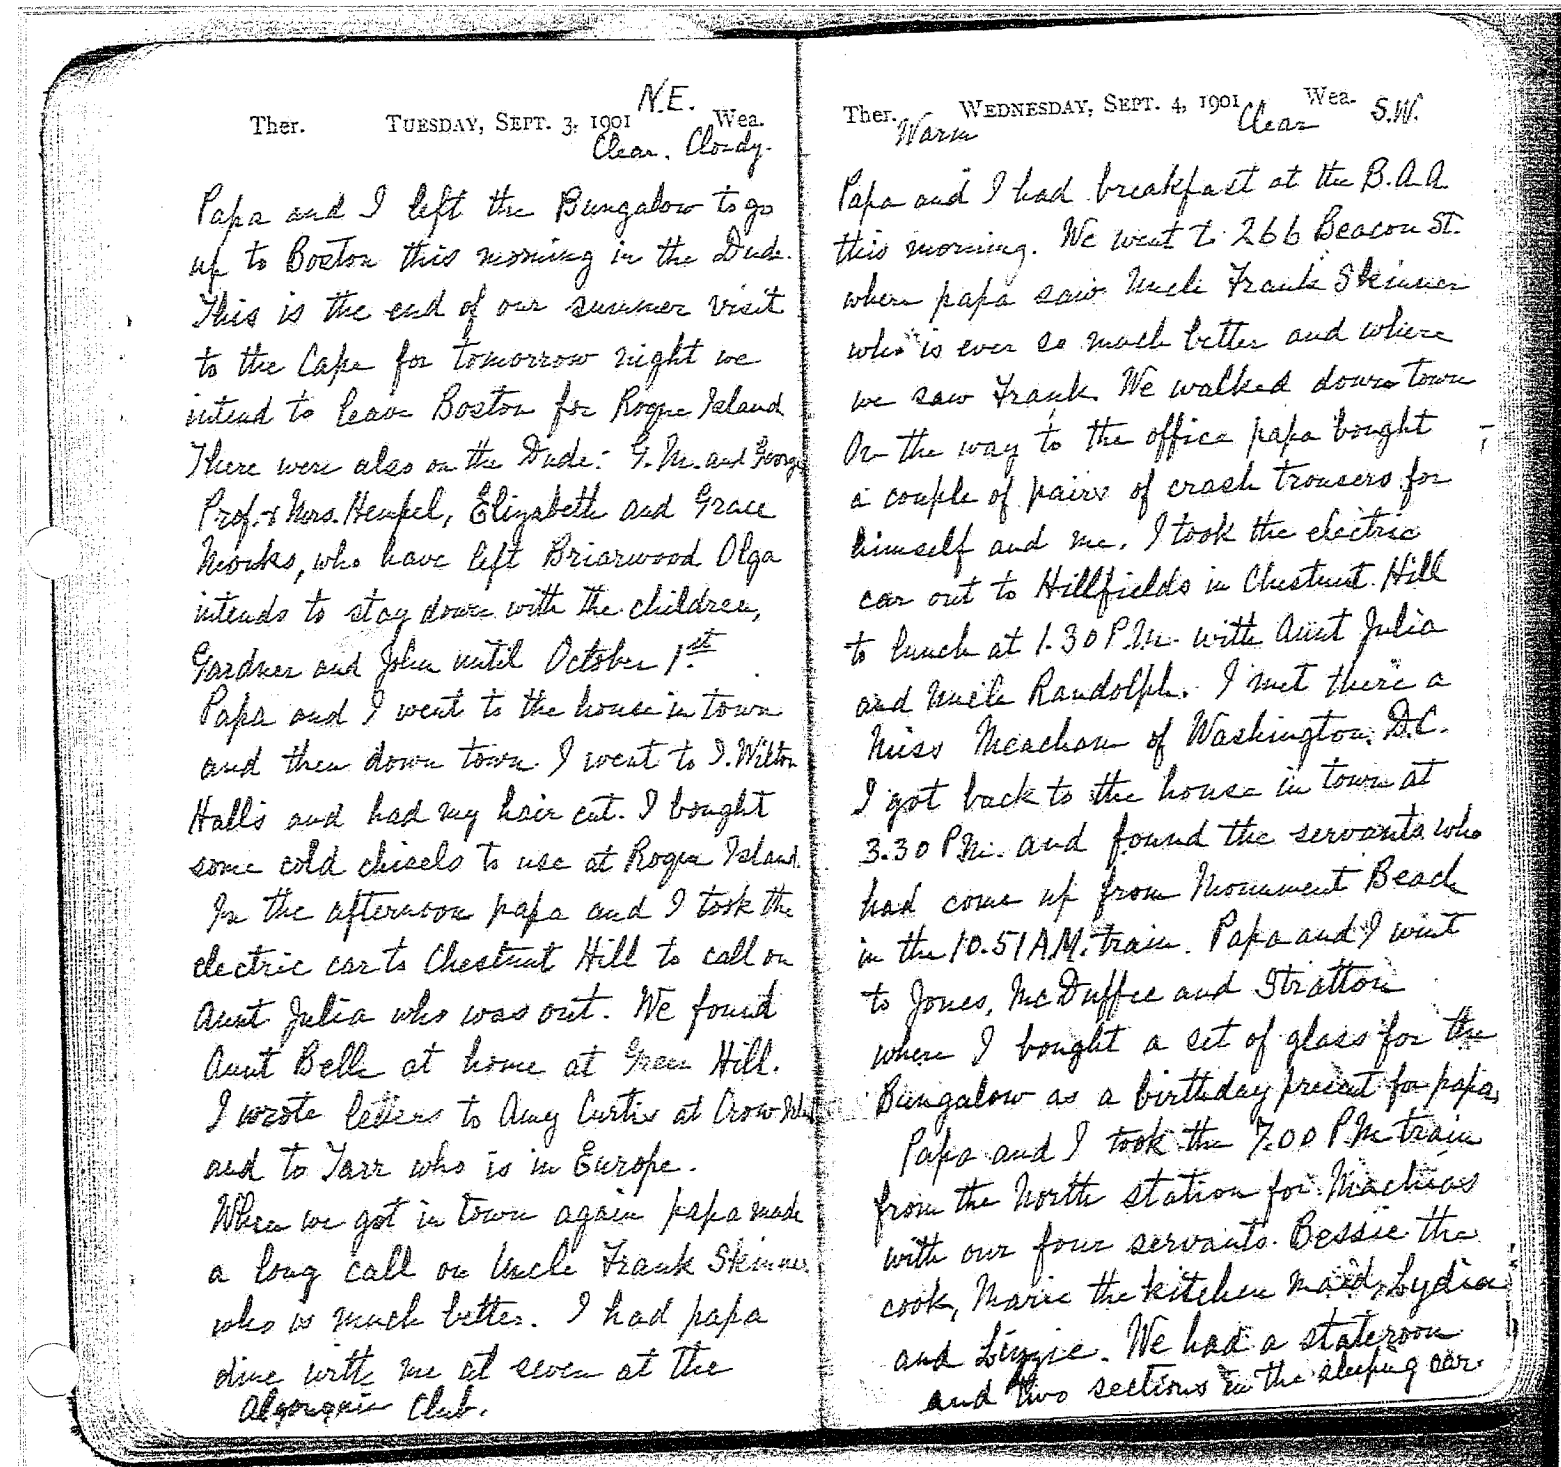 N.E.
Ther. TUESDAY, SEPT. 3, 1901 Wea.
Clear. Cloudy.
Papa and I left the Bungalow to go
up to Boston this morning in the Dude.
This is the end of our summer visit
to the Cape for tomorrow night we
intend to leave Boston for Roque Island
There were also on the Dude:- G.M. and George
Prof. & Mrs. Hempel, Elizabeth and Grace
Monks, who have left Briarwood Olga
intends to stay down with the children,
Gardner and John until October 1st.
Papa and I went to the house in town
and then down town. I went to I. Wilton
Hall's and had my hair cut. I bought
some cold chisels to use at Roque Island.
In the afternoon papa and I took the
electric car to Chestnut Hill to call on
Aunt Julia who was out. We found
Aunt Belle at home at Green Hill.
I wrote letters to Amy Curtis at Crow Isl
and to Tarr who is in Europe.
When we got in town again papa made
a long call on Uncle Frank Skinner
who is much better. I had papa
dine with me at seven at the
Algonquin Club.
Ther. WEDNESDAY, SEPT. 4, 1901 Wea. S.W.
Warm Clear
Papa and I had breakfast at the B.A.A
this morning. We went to 266 Beacon St.
where papa saw Uncle Frank Skinner
who is ever so much better and where
we saw Frank. We walked down town
On the way to the office papa bought
a couple of pairs of crash trousers for
himself and me. I took the electric
car out to Hillfields in Chestnut Hill
to lunch at 1.30 P.M. with Aunt Julia
and Uncle Randolph. I met there a
Miss Meacham of Washington, D.C.
I got back to the house in town at
3.30 P.M. and found the servants who
had come up from Monument Beach
in the 10.51 A.M. train. Papa and I went
to Jones, McDuffee and Stratton
where I bought a set of glass for the
Bungalow as a birthday present for papa.
Papa and I took the 7.00 P.M. train
from the North station for Machias
with our four servants. Bessie the
cook, Marie the kitchen maid, Lydia
and Lizzie. We had a stateroom
and two sections in the sleeping car.